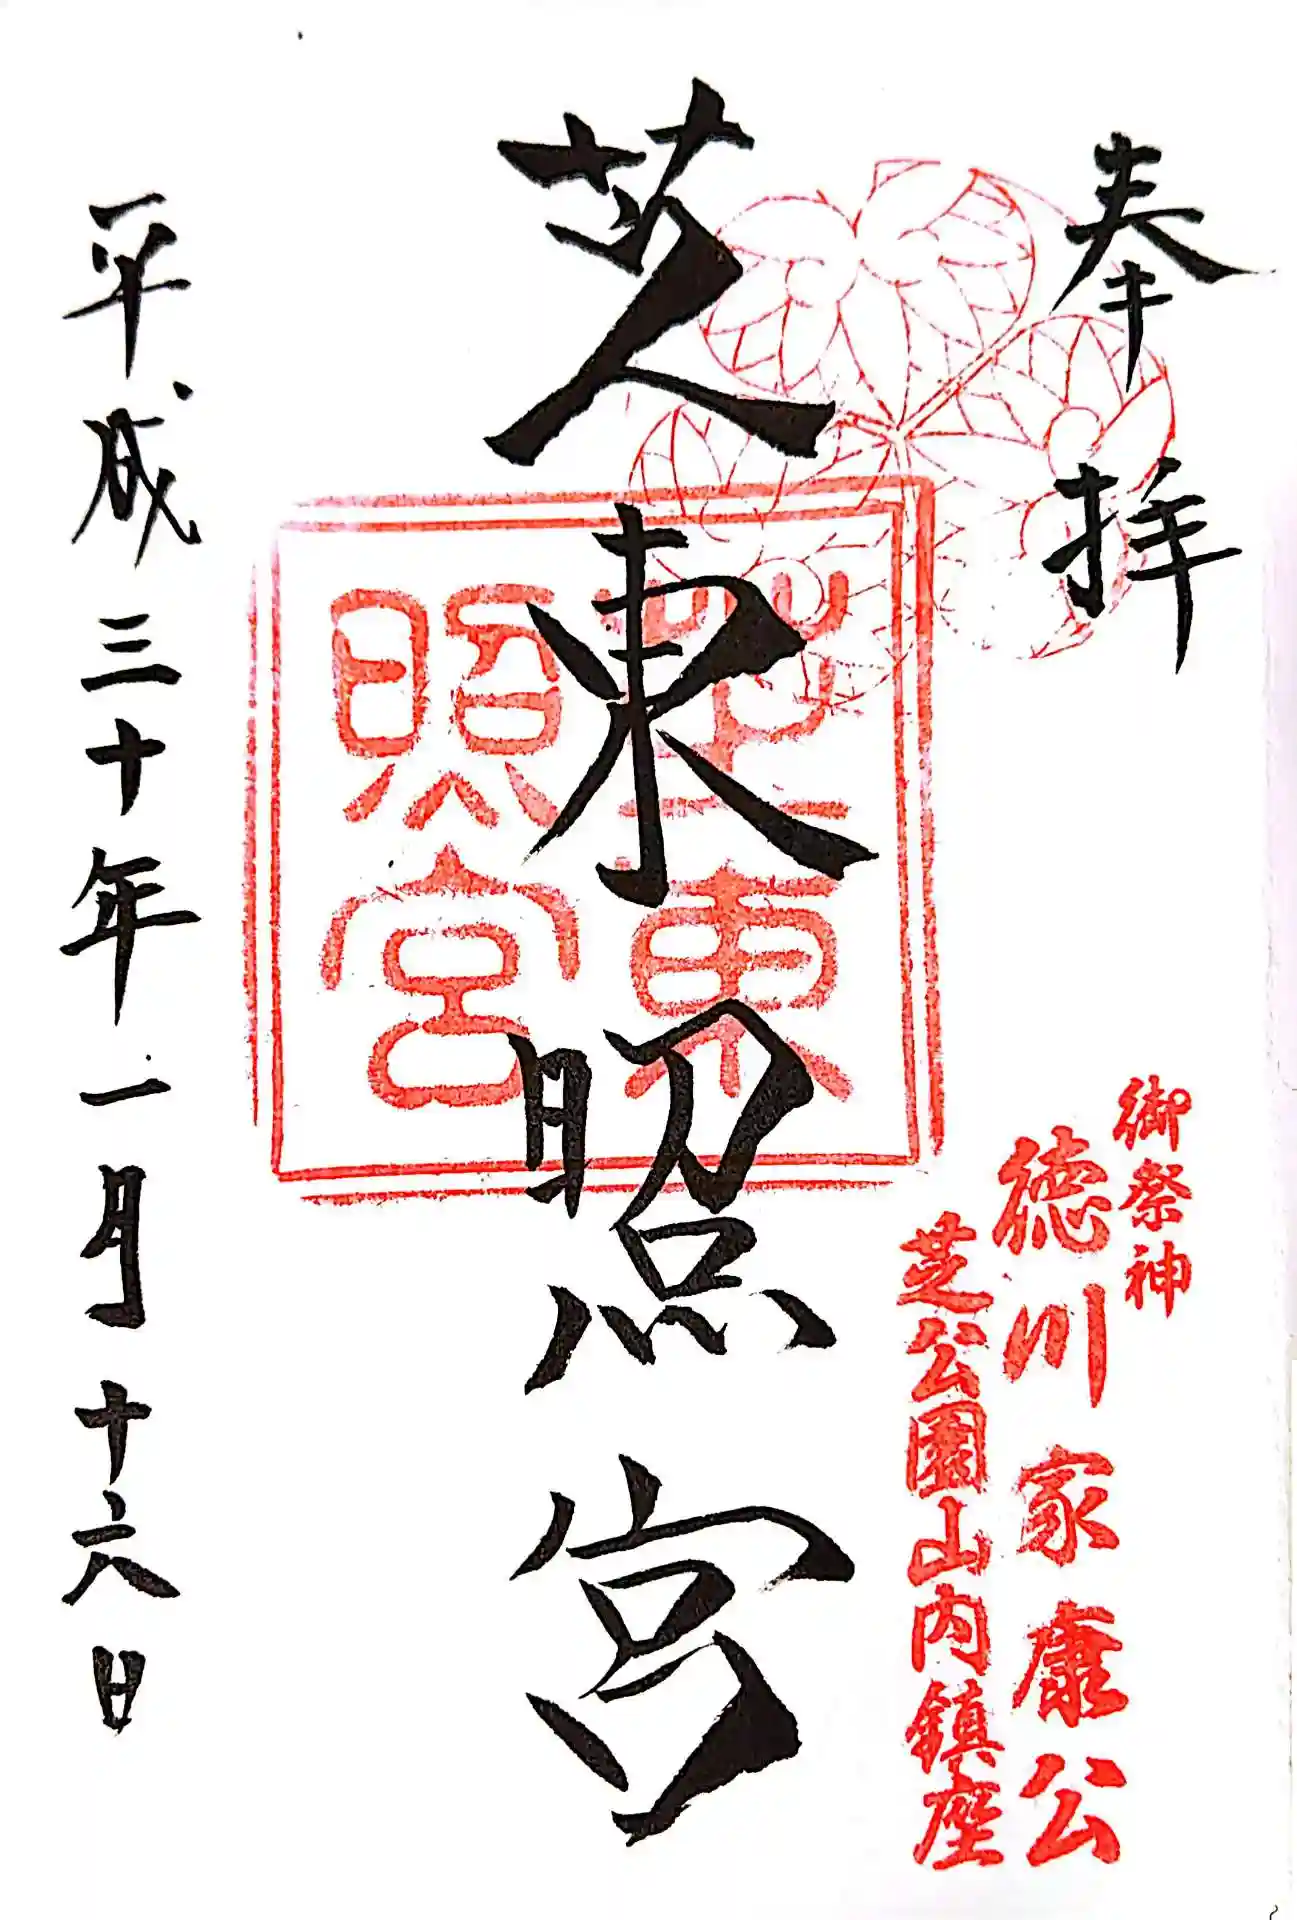 奉拝
御祭神
徳川家康公
芝公園山内鎮座
芝東照宮
芝東
照宮
平成三十年一月十六日